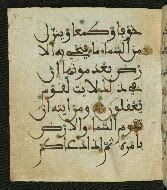 خوفا وطمعا وينزل
من السما ما فيحي به الا
رض بعد موتها ان
في ذلك لايت لقوم
يعقلون ومن ايته ان
تقوم السما والارض
بامره ثم اذا دعاكم